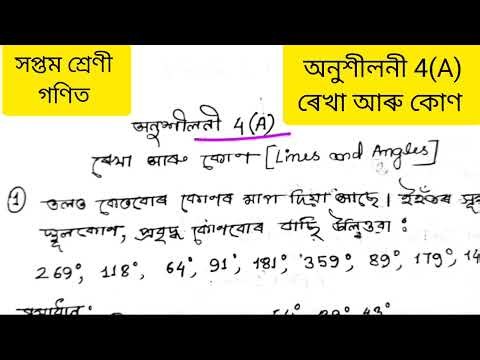 সপ্তম শ্ৰেণী
গণিত
অনুশীলনী 4(A)
ৰেখা আৰু কোণ
অনুশীলনী 4(A)
ৰেখা আৰু কোণ [Lines and Angles]
① তলত কেতবোৰ কোণৰ মাপ দিয়া আছে। ইহঁতৰ সূক্ষ
স্থূলকোণ, প্ৰবৃদ্ধ কোণবোৰ বাছি উলিওৱা :
269°, 118°, 64°, 91°, 181°, 359°, 89°, 179°, 14
সমাধান: